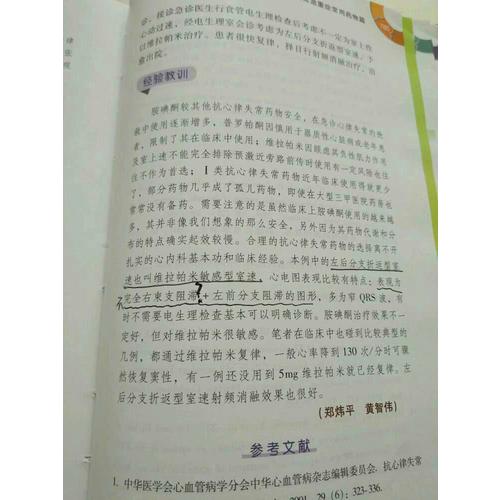 诊,接诊急诊医生行食管电生理检查后考虑不一定为室上性
心动过速,经电生理室会诊考虑为左后分支折返型室速,予
以维拉帕米治疗。患者很快复律,择日行射频消融治疗,治
愈出院。
经验教训
胺碘酮较其他抗心律失常药物安全,在急诊心律失常的抢
救中使用逐渐增多,普罗帕酮因慎用于器质性心脏病或老年患
者,限制了其在临床中使用;维拉帕米因顾虑其负性肌力作用
及室上速不能完全排除预激近旁路前传时使用有一定风险也往
往不作为首选;Ⅰ类抗心律失常药物近年临床使用得就更少
了,部分药物几乎成了孤儿药物,即使在大型三甲医院药房也
常常没有备药。需要注意的是虽然临床上胺碘酮使用的越来越
多,其并非像我们想象的那么安全,另外因为其药物代谢和分
布的特点确实起效较慢。合理的抗心律失常药物的选择离不开
扎实的心内科基本功和临床经验。本例中的左后分支折返型室
速也叫维拉帕米敏感型室速,心电图表现比较有特点:表现为
不完全右束支阻滞?+左前分支阻滞的图形,多为窄QRS波,有
时不需要电生理检查基本可以明确诊断。胺碘酮治疗效果不一
定好,但对维拉帕米很敏感。笔者在临床中也碰到比较典型的
几例,都通过维拉帕米复律,一般心率降到130次/分时可骤
然恢复窦性,有一例还没用到5mg维拉帕米就已经复律。左
后分支折返型室速射频消融效果也很好。
(郑炜平 黄智伟)
参考文献
1. 中华医学会心血管病学分会中华心血管病杂志编辑委员会. 抗心律失常
2001, 29 (6): 323-336.